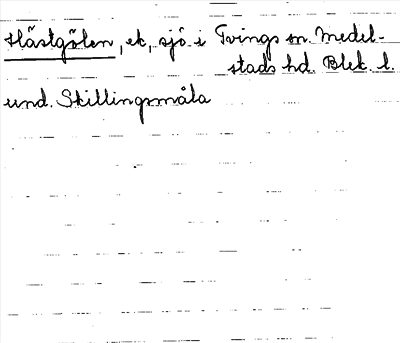 Hästgölen, ek, sjö i Tvings sn. Medel-
stads hd. Blek. l.
und. Skillingsmåla